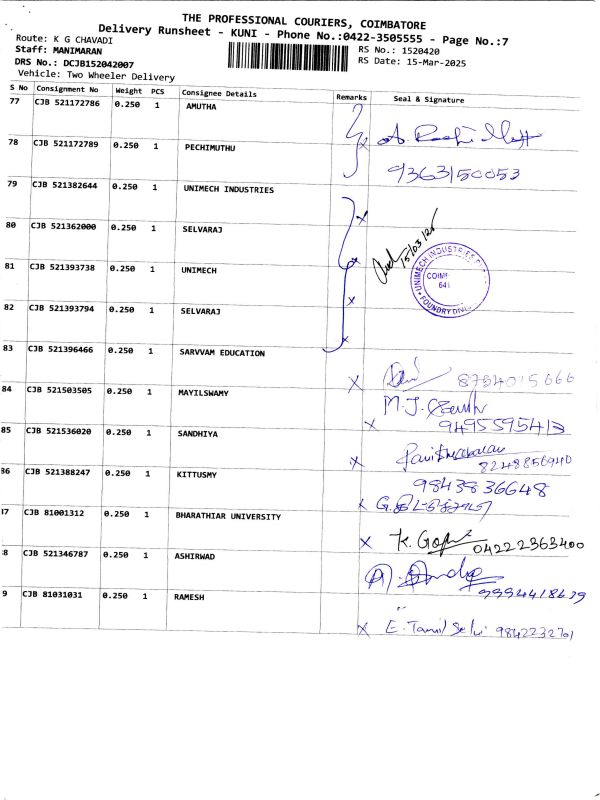 THE PROFESSIONAL COURIERS, COIMBATORE
Delivery Runsheet - KUNI - Phone No.:0422-3505555 - Page No.:7
Route: K G CHAVADI
RS No.: 1520420
Staff: MANIMARAN
RS Date: 15-Mar-2025
DRS No.: DCJB152042007
Vehicle: Two Wheeler Delivery
S No Consignment No Weight PCS Consignee Details Remarks Seal & Signature
77 CJB 521172786 0.250 1 AMUTHA
78 CJB 521172789 0.250 1 PECHIMUTHU
9363150053
79 CJB 521382644 0.250 1 UNIMECH INDUSTRIES
80 CJB 521362000 0.250 1 SELVARAJ
15/03/25
81 CJB 521393738 0.250 1 UNIMECH
UNIMECH INDUSTRIES
641
FOUNDRY
82 CJB 521393794 0.250 1 SELVARAJ
83 CJB 521396466 0.250 1 SARVVAM EDUCATION
8754015666
84 CJB 521503505 0.250 1 MAYILSWAMY
M.J.
9495595413
85 CJB 521536020 0.250 1 SANDHIYA
8248856940
36 CJB 521388247 0.250 1 KITTUSMY
9843836648
17 CJB 81001312 0.250 1 BHARATHIAR UNIVERSITY
K. Gopi 04222363400
8 CJB 521346787 0.250 1 ASHIRWAD
9994418679
9 CJB 81031031 0.250 1 RAMESH
E. Tamil Selvi 9842232701